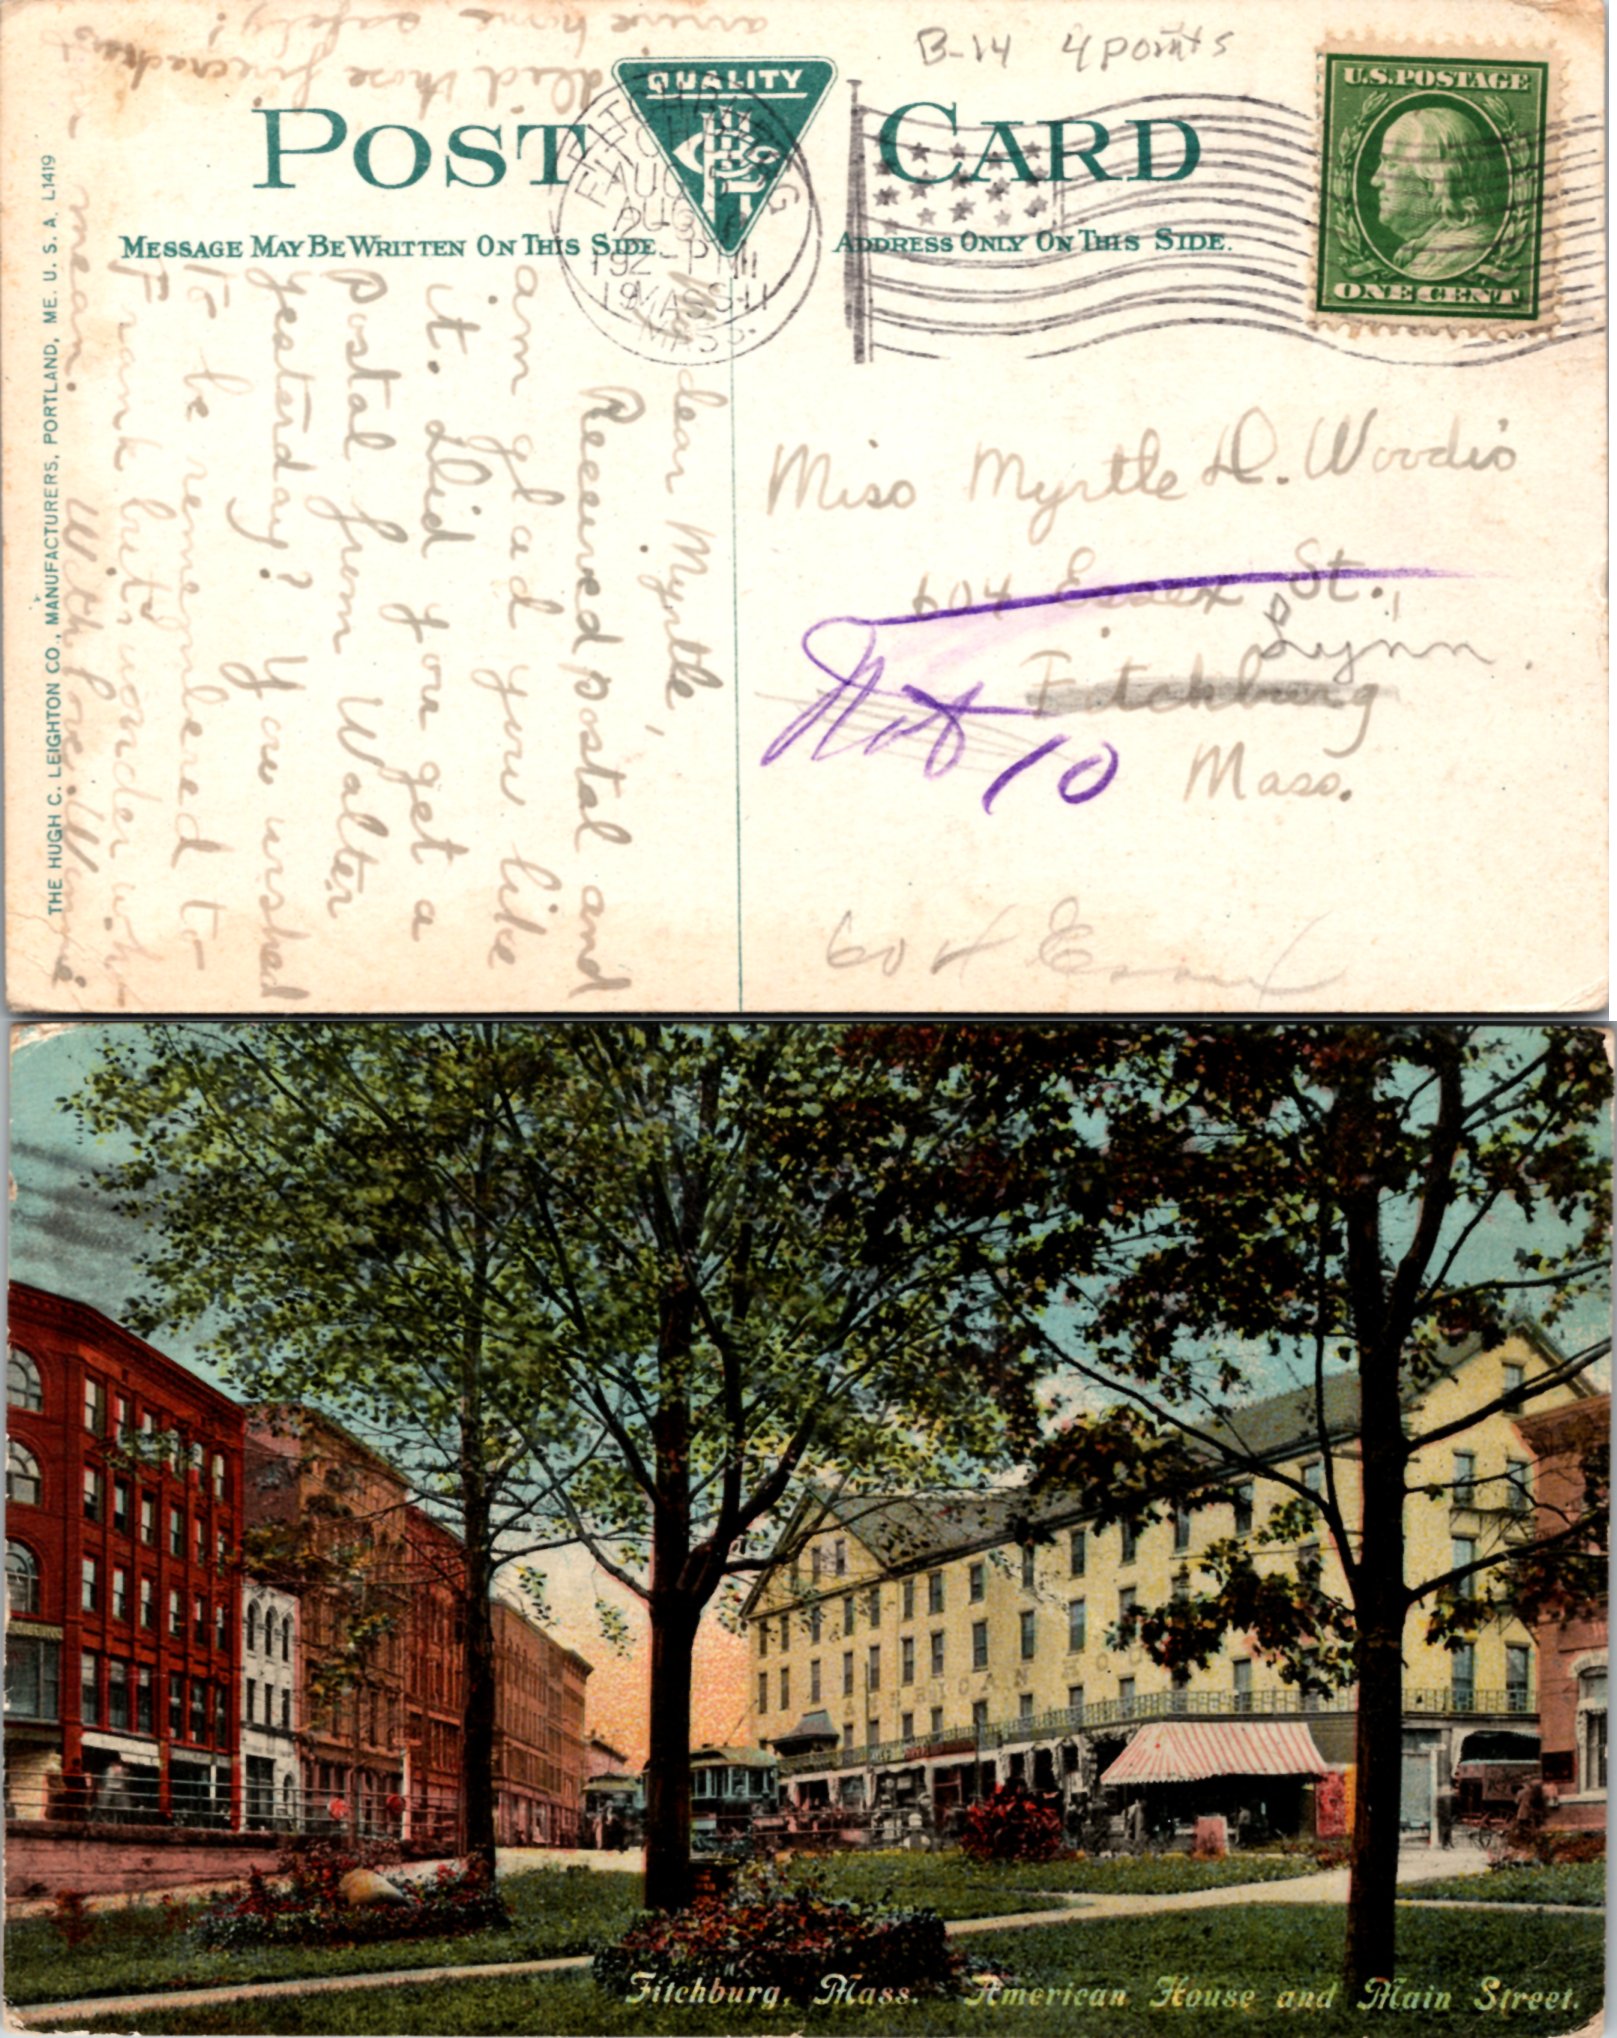 B-14 4 points
QUALITY
POST CARD
U.S. POSTAGE
ONE CENT
FITCHBURG
AUG
2-PM
1911
MASS.
MESSAGE MAY BE WRITTEN ON THIS SIDE.
ADDRESS ONLY ON THIS SIDE.
THE HUGH C. LEIGHTON CO., MANUFACTURERS, PORTLAND, ME. U. S. A. L1419
dear Myrtle,
Received postal and
am glad you like
it. Did you get a
postal from Walter
yesterday? You wished
to be remembered to
Frank but I wonder who
mean.
With love Winnie
Did those firecrackers
arrive home safely?
Miss Myrtle D. Woodis
604 Essex St.,
Lynn.
Fitchburg
Mass.
Not 10
604 Essex
AMERICAN HOU
Fitchburg, Mass. American House and Main Street.